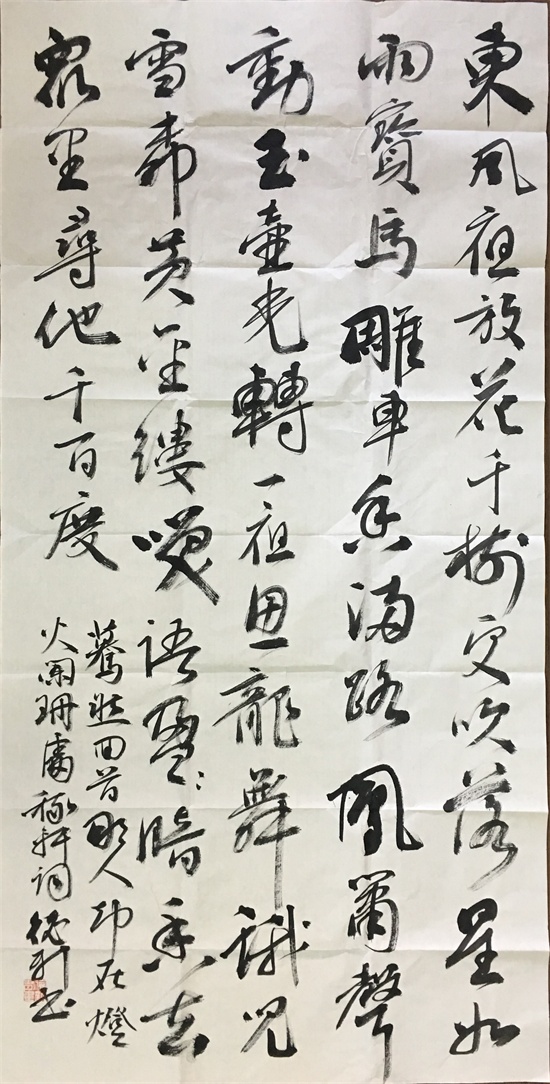 東風夜放花千樹更吹落星如
雨寶馬雕車香滿路鳳簫聲
動玉壺光轉一夜魚龍舞蛾兒
雪柳黃金縷咲語盈〻暗香去
眾里尋他千百度
驀然回首那人却在燈
火闌珊處稼軒詞 书